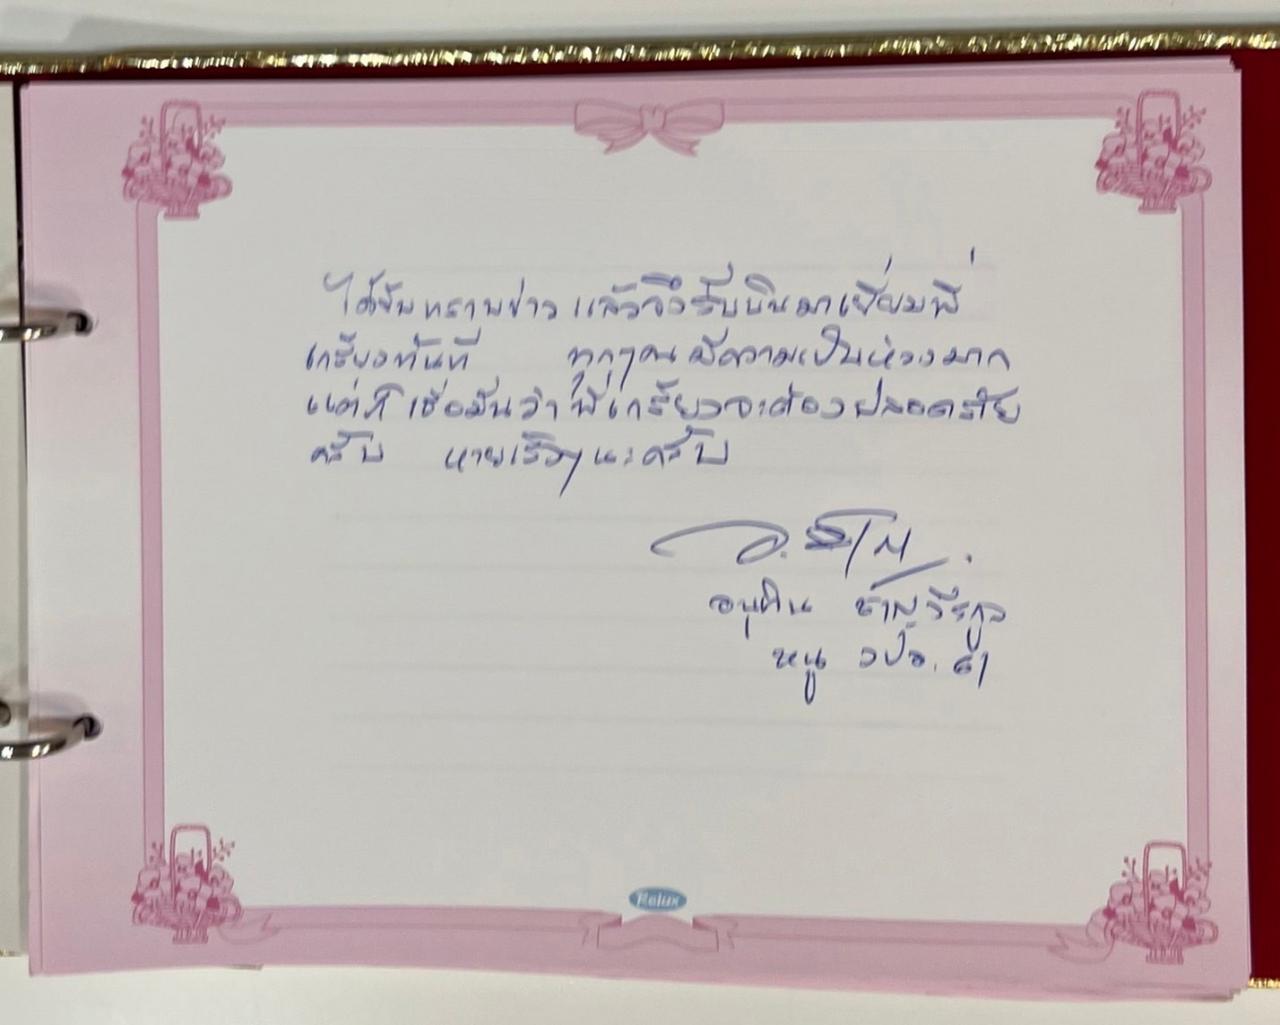 ได้รับทราบข่าว แล้วจึงรีบบินมาเยี่ยมพี่
เกรียงทันที ทุกๆคนมีความเป็นห่วงมาก
แต่ก็เชื่อมั่นว่าพี่เกรียงจะต้องปลอดภัย
ครับ หายเร็วๆนะครับ
อนุทิน ชาญวีรกูล
หนู วปอ. 61
Relux